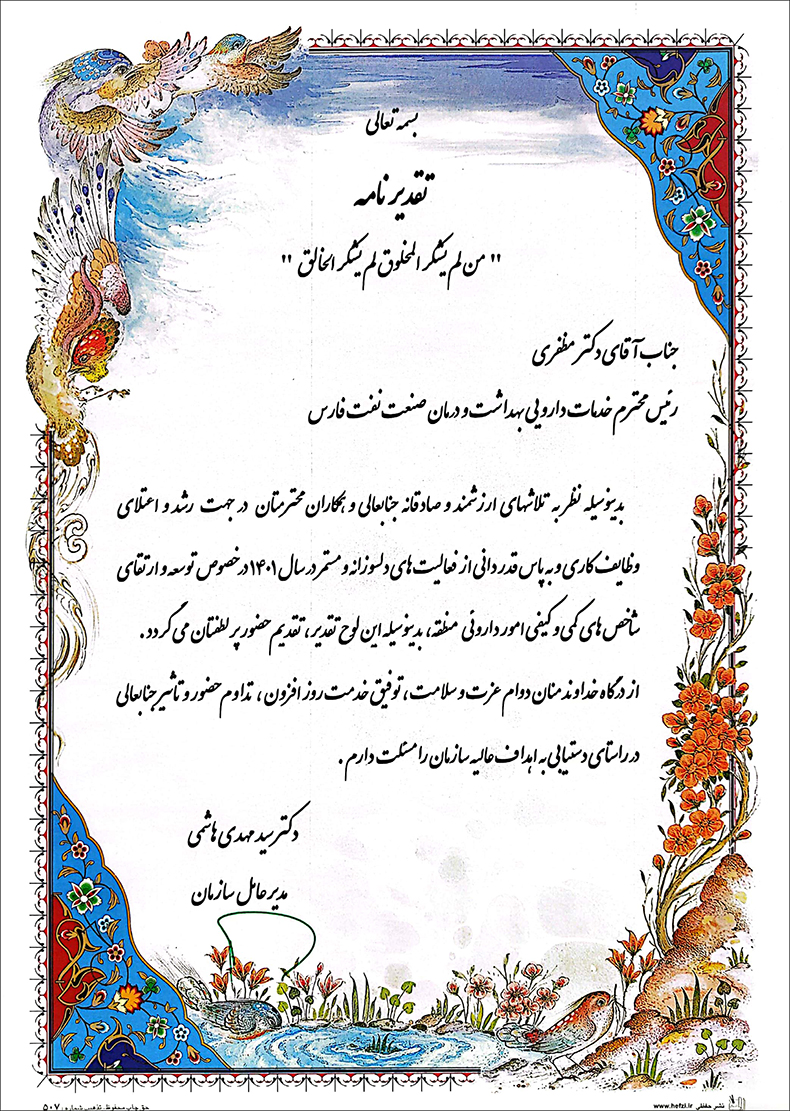 بسمه تعالی
تقدیر نامه
" من لم یشکر المخلوق لم یشکر الخالق "
جناب آقای دکتر مظفری
رئیس محترم خدمات دارویی بهداشت و درمان صنعت نفت فارس
بدینوسیله نظر به تلاشهای ارزشمند و صادقانه جنابعالی و همکاران محترمتان در جهت رشد و اعتلای
وظایف کاری و به پاس قدردانی از فعالیت های دلسوزانه و مستمر در سال ۱۴۰۱ در خصوص توسعه و ارتقای
شاخص های کمی و کیفی امور داروئی منطقه، بدینوسیله این لوح تقدیر، تقدیم حضور پر لطفتان می گردد.
از درگاه خداوند منان دوام عزت و سلامت، توفیق خدمت روز افزون، تداوم حضور و تأثیر جنابعالی
در راستای دستیابی به اهداف عالیه سازمان را مسئلت دارم.
دکتر سید مهدی هاشمی
مدیر عامل سازمان
نشر حفظی www.hefzi.ir
حق چاپ محفوظ. تذهیب شماره: ۵۰۷